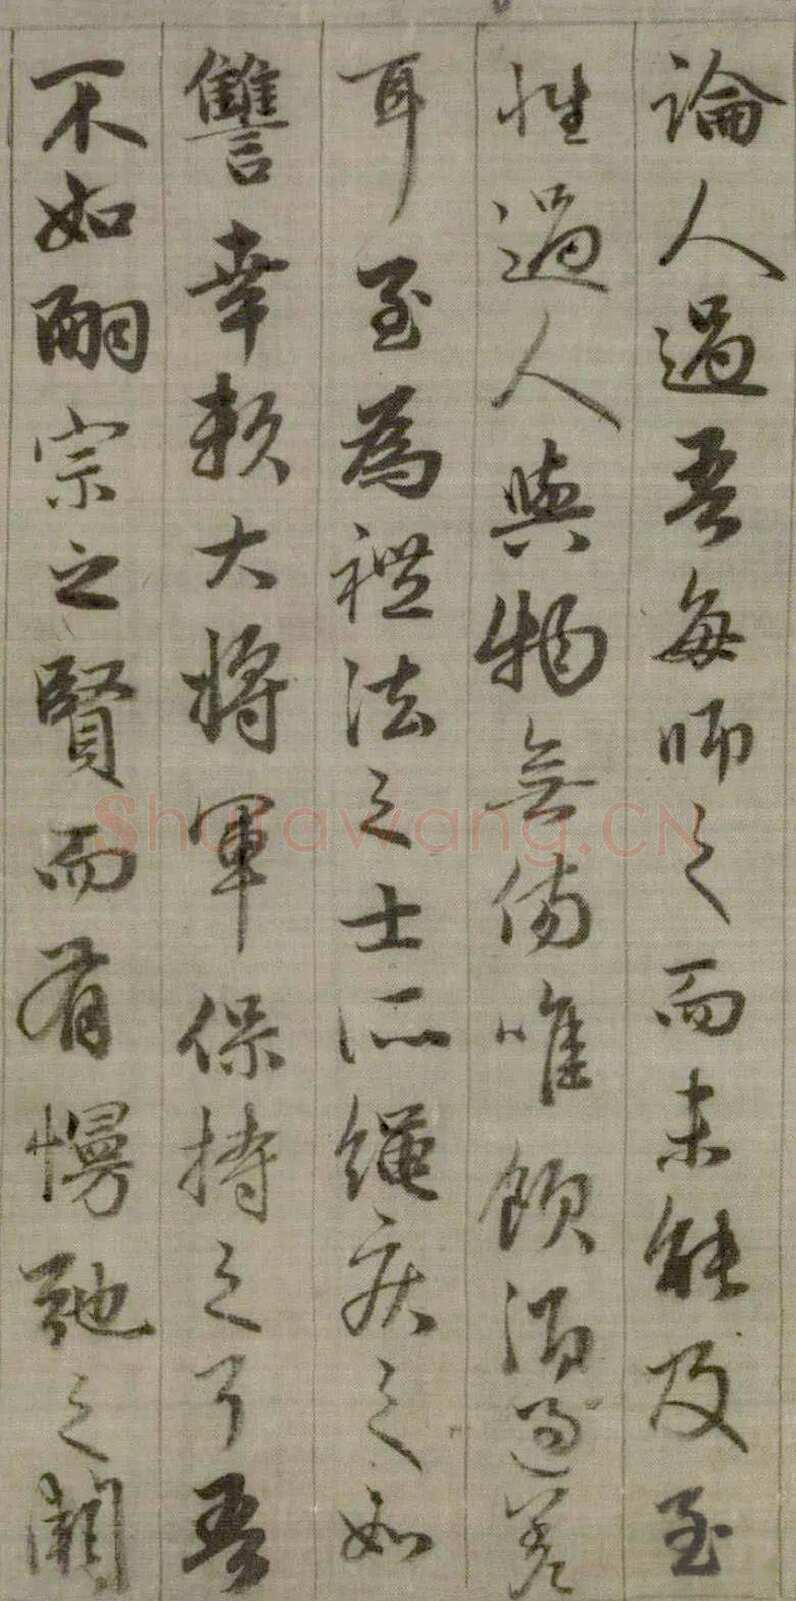 論人過吾每師之而未能及至
性過人與物無傷唯飲酒過差
耳至為禮法之士所繩疾之如
讐幸賴大將軍保持之耳吾
不如嗣宗之賢而有慢弛之闕
Shufawang.CN